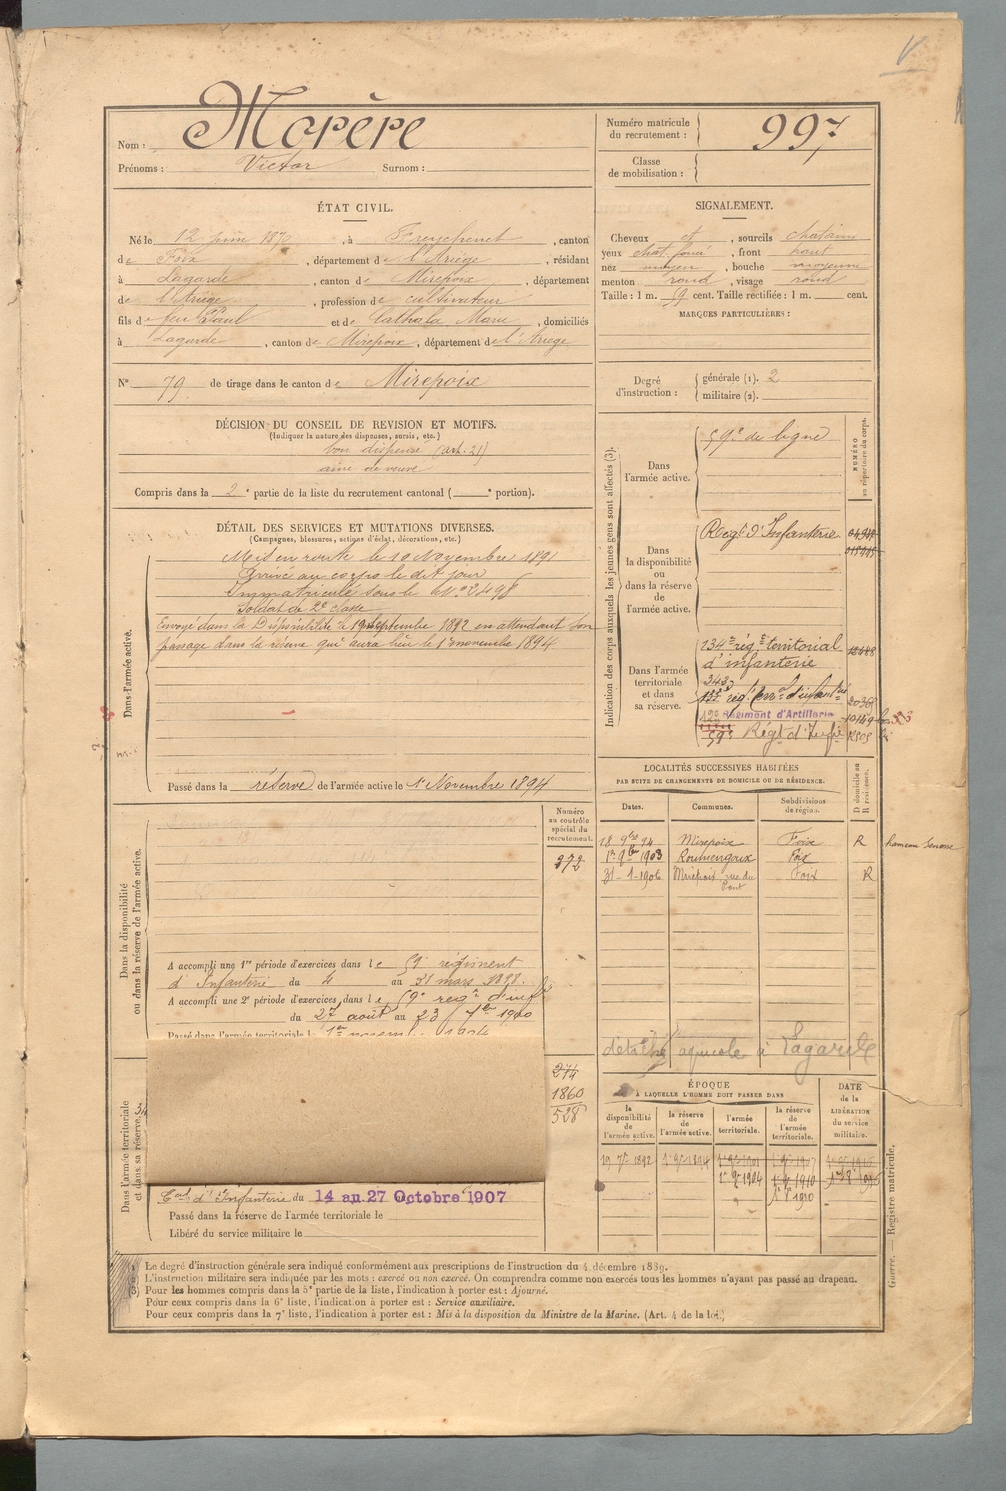 V
Nom : Morère
Prénoms : Victor Surnom :
Numéro matricule du recrutement : 997
Classe de mobilisation :
ÉTAT CIVIL.
Né le 12 juin 1870, à Freychenet, canton
de Foix, département de l'Ariège, résidant
à Lagarde, canton de Mirepoix, département
de l'Ariège, profession de cultivateur
fils de feu Paul et de Marie, domiciliés
à Lagarde, canton de Mirepoix, département de l'Ariège
N° 79 de tirage dans le canton de Mirepoix
SIGNALEMENT.
Cheveux et, sourcils chatains
yeux chat. foncé, front haut
nez moyen, bouche moyenne
menton rond, visage rond
Taille : 1 m. 59 cent. Taille rectifiée : 1 m. cent.
MARQUES PARTICULIÈRES :
Degré d'instruction : générale (1). 2
militaire (2).
DÉCISION DU CONSEIL DE REVISION ET MOTIFS.
(Indiquer la nature des dispenses, sursis, etc.)
bon dispensé (art. 21)
ainé de veuve
Compris dans la 2e partie de la liste du recrutement cantonal ( e portion).
DÉTAIL DES SERVICES ET MUTATIONS DIVERSES.
(Campagnes, blessures, actions d'éclat, décorations, etc.)
Dans l'armée active.
Mis en route le 10 Novembre 1891
Arrivé au corps le dit jour
Immatriculé sous le N° 2498
Soldat de 2e classe
Envoyé dans la Disponibilité le 19 septembre 1892 en attendant son
passage dans la réserve qui aura lieu le 1er novembre 1894
Passé dans la réserve de l'armée active le 1er Novembre 1894
Indication des corps auxquels les jeunes gens sont affectés (3).
NUMÉRO au répertoire du corps.
Dans l'armée active.
59e de ligne
Dans la disponibilité ou dans la réserve de l'armée active.
Régt d'Infanterie
Dans l'armée territoriale et dans sa réserve.
134e régt territorial
d'infanterie
343
135e régt terral d'infantrie
Régiment d'Artillerie
59e Régt d'Infie
LOCALITÉS SUCCESSIVES HABITÉES
PAR SUITE DE CHANGEMENTS DE DOMICILE OU DE RÉSIDENCE.
D domicile ou R résidence.
Dates. Communes. Subdivisions de région.
18 9bre 94 Mirepoix Foix R hameau Senesse
1er 9bre 1903 Roumengoux Foix
31-1-1906 Mirepoix rue du Pont Foix R
Dans la disponibilité ou dans la réserve de l'armée active.
Numéro au contrôle spécial du recrutement.
372
A accompli une 1re période d'exercices dans le 59e régiment
d'Infanterie du 4 au 31 mars 1898.
A accompli une 2e période d'exercices dans le 59e régt d'inf
du 27 août au 23 7bre 1900
Passé dans l'armée territoriale le 1er novembre 1904
agricole à Lagarde
Dans l'armée territoriale et dans sa réserve.
274
1860
528
d'Infanterie du 14 au 27 Octobre 1907
Passé dans la réserve de l'armée territoriale le
Libéré du service militaire le
ÉPOQUE
A LAQUELLE L'HOMME DOIT PASSER DANS
la disponibilité de l'armée active. la réserve de l'armée active. l'armée territoriale. la réserve de l'armée territoriale.
DATE de la LIBÉRATION du service militaire.
19 7bre 1892 1er 9bre 1894 1er 9bre 1904 1er 9bre 1910
Guerre. — Registre matricule.
(1) Le degré d'instruction générale sera indiqué conformément aux prescriptions de l'instruction du 4 décembre 1889.
(2) L'instruction militaire sera indiquée par les mots : exercé ou non exercé. On comprendra comme non exercés tous les hommes n'ayant pas passé au drapeau.
(3) Pour les hommes compris dans la 5e partie de la liste, l'indication à porter est : Ajourné.
Pour ceux compris dans la 6e liste, l'indication à porter est : Service auxiliaire.
Pour ceux compris dans la 7e liste, l'indication à porter est : Mis à la disposition du Ministre de la Marine. (Art. 4 de la loi.)